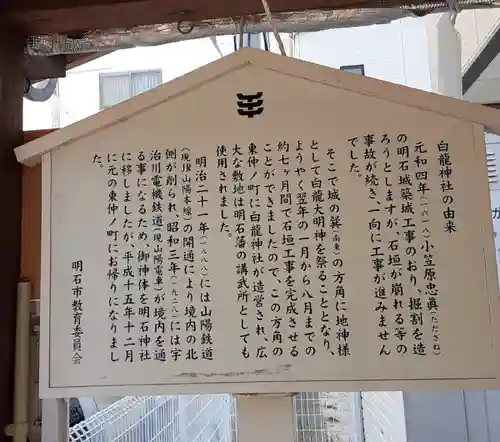 白龍神社の由来
元和四年（一六一八）小笠原忠眞（ただざね）
の明石城築城工事のおり、掘割を造
ろうとしますが、石垣が崩れる等の
事故が続き一向に工事が進みません
でした。
そこで城の巽（南東）の方角に地神様
として白龍大明神を祭ることとなり、
ようやく翌年の一月から八月までの
約七ヶ月間で石垣工事を完成させる
ことができましたので、この方角の
東仲ノ町に白龍神社が造営され、広
大な敷地は明石藩の講武所としても
使用されました。
明治二十一年（一八八八）には山陽鉄道
（現JR山陽本線）の開通により境内の北
側が削られ、昭和三年（一九二八）には宇
治川電機鉄道（現山陽電車）が境内を通
る事になるため、御神体を明石神社
に移しましたが、平成十五年十二月
に元の東仲ノ町にお帰りになりまし
た。
明石市教育委員会